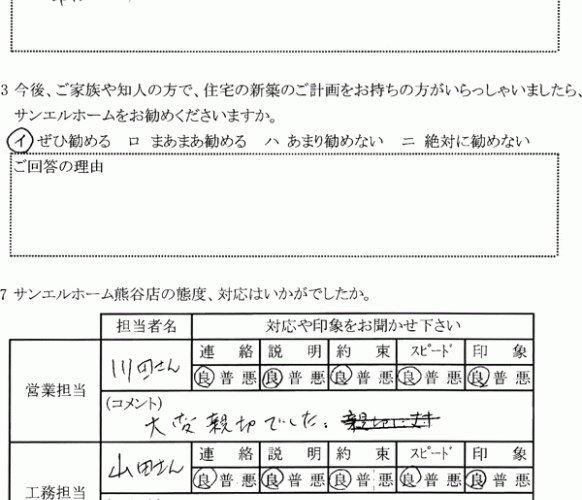 3 今後、ご家族や知人の方で、住宅の新築のご計画をお持ちの方がいらっしゃいましたら、
サンエルホームをお勧めくださいますか。
イ ぜひ勧める ロ まあまあ勧める ハ あまり勧めない ニ 絶対に勧めない
ご回答の理由
7 サンエルホーム熊谷店の態度、対応はいかがでしたか。
担当者名 対応や印象をお聞かせ下さい
営業担当 川田さん 連絡 説明 約束 スピード 印象
良 普 悪 良 普 悪 良 普 悪 良 普 悪 良 普 悪
(コメント)
大変親切でした。
工務担当 山田さん 連絡 説明 約束 スピード 印象
良 普 悪 良 普 悪 良 普 悪 良 普 悪 良 普 悪